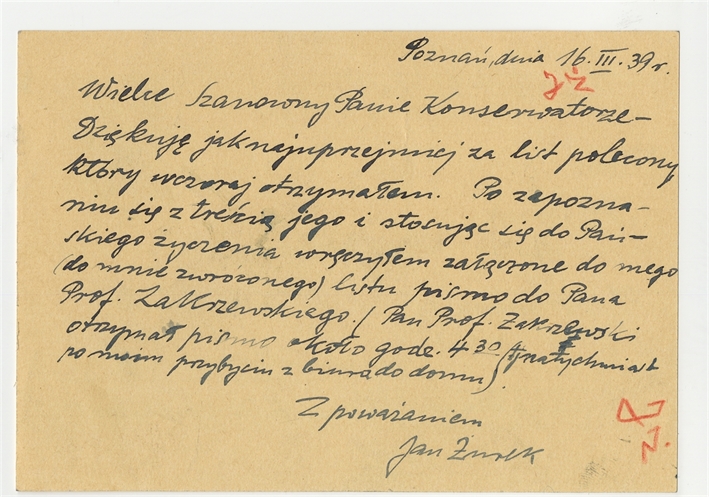 Poznań, dnia 16. III. 39 r.
Wielce Szanowny Panie Konserwatorze –
Dziękuję jaknajuprzejmiej za list polecony,
który wczoraj otrzymałem. Po zapozna-
niu się z treścią jego i stosując się do Pań-
skiego życzenia wręczyłem załączone do mego
(do mnie zwróconego) listu pismo do Pana
Prof. Zakrzewskiego. (Pan Prof. Zakrzewski
otrzymał pismo około godz. 4 30 (natychmiast
po moim przybyciu z biura do domu).
Z poważaniem
Jan Żurek